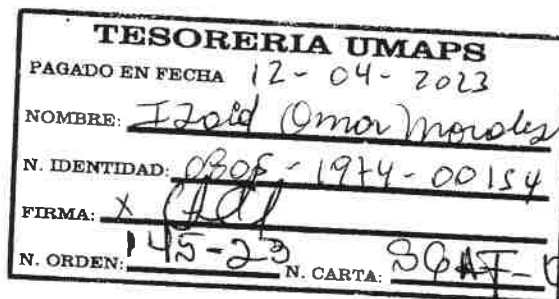 TESORERIA UMAPS
PAGADO EN FECHA 12-04-2023
NOMBRE: Omar Morales
N. IDENTIDAD: -00154
FIRMA: X
N. ORDEN: 145-23 N. CARTA: